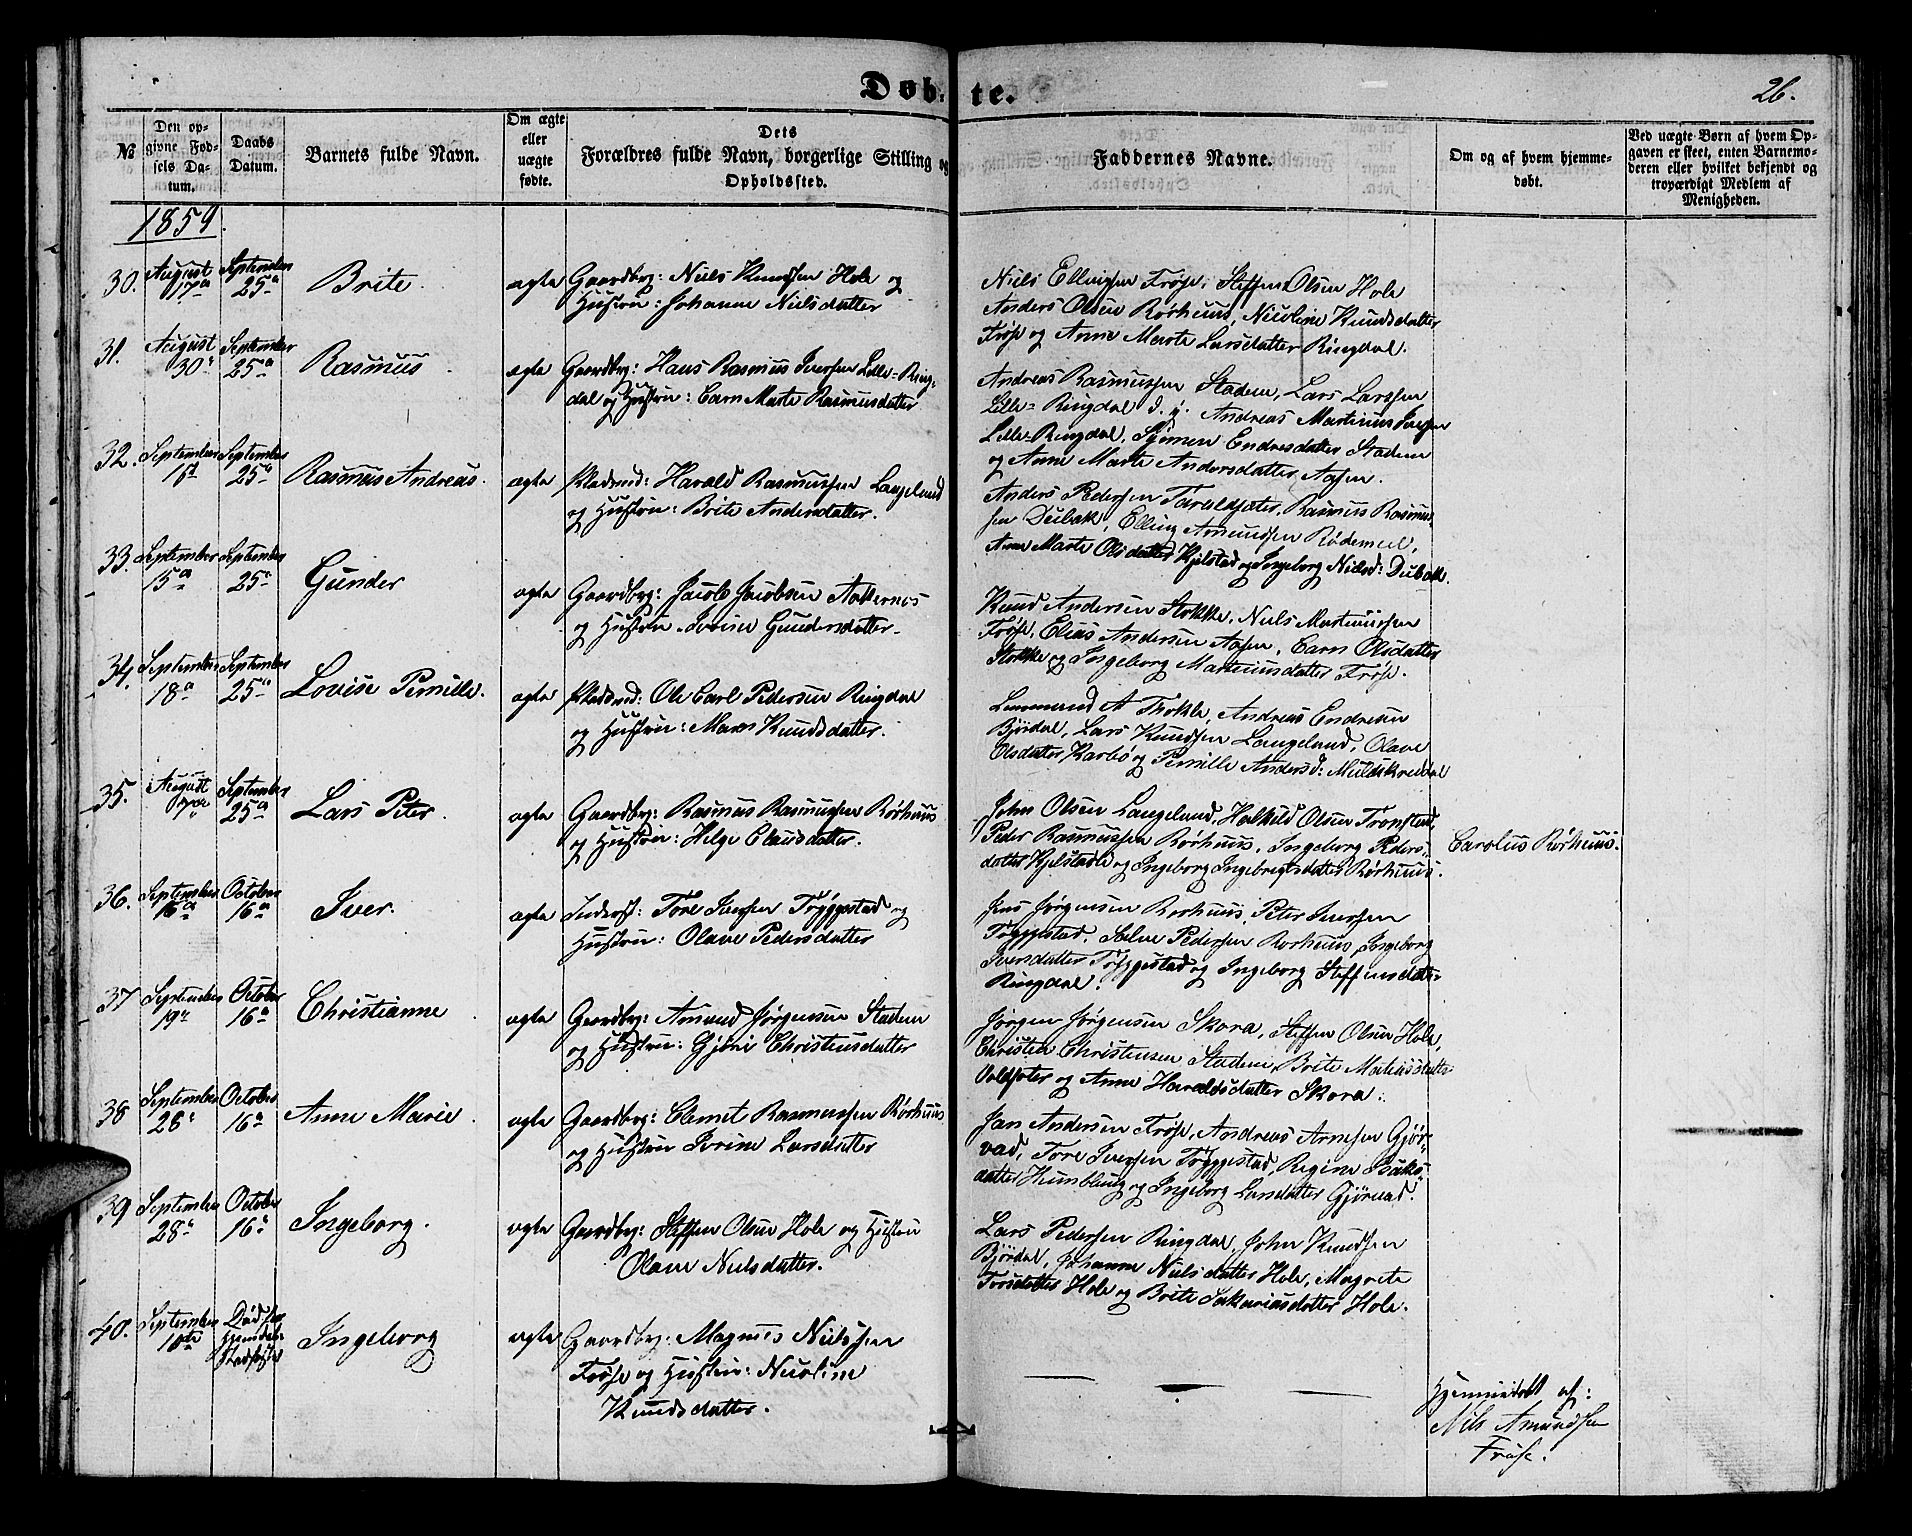 Døbte.
26.
№
Den opgivne Fødsels Datum.
Daabs Datum.
Barnets fulde Navn.
Om ægte eller uægte fødte.
Dets Forældres fulde Navn, borgerlige Stilling og Opholdssted.
Faddernes Navne.
Om og af hvem hjemmedøbt.
Ved uægte Børn af hvem Opgaven er skeet, enten Barnemoderen eller hvilket bekjendt og troværdigt Medlem af Menigheden.
1859.
30. August 17de September 25de Brite. ægte Gaardbrg: Niels Knudsen Hole og
Hustru: Johanne Nielsdatter
Niels Ellingsen Frøse, Steffen Olsen Hole
Anders Olsen Rørhuus, Nicoline Knudsdatter
Frøse og Anne Marte Larsdatter Ringdal.
31. August 30 September 25 Rasmus. ægte Gaardbrg: Hans Rasmus Iversen Lille=Ring=
dal og Hustru: Carn Marte Rasmusdatter
Andreas Rasmussen Stadem, Lars Larssen
Lille=Ringdal d. y. Andreas Martinus Iversen
Lille=Ringdal, Endresdatter Stadem
og Anne Marte Andersdatter Aasen.
32. September September 25 Rasmus Andreas. ægte Pladsmd: Harald Rasmussen Langeland
og Hustru: Brite Andersdatter.
Anders Pedersen Taraldsæter, Rasmus Rasmus
sen Deibak, Elling Amundsen Rødemel,
Anne Marte Olsdatter Kjelstad og Ingeborg Nielsd: Deibak.
33. September 15 September 25 Gunder ægte Gaardbrg: Jacob Jacobsen Aakernes
og Hustru. Ivrine Gundersdatter.
Knud Andersen Stokke, Niels Martinussen
Frøse, Elias Andersen Aasen, Carn Olsdatter
Stokke og Ingeborg Martinusdatter Frøse.
34. September 18 September 25 Lovise Pernille. ægte Pladsmd: Ole Carl Pedersen Ringdal
og Hustru: Maren Knudsdatter.
A Thokle, Andreas Endresen
Bjørdal, Lars Knudsen Langeland, Olave
Olsdatter Karbø og Pernille Andersd: Muldskreddal
35. August 7de September 25 Lars Peter. ægte Gaardbrg: Rasmus Rasmussen Rørhuus
og Hustru: Helge Clausdatter.
John Olsen Langeland, Halkild Olsen Tronstad,
Peder Rasmussen Rørhuus, Ingeborg Peders=
datter Kjelstadle og Ingeborg Ingebrigtsdatter Rørhuus.
Carolus Rørhuus.
36. September 16 October 16 Iver. ægte Inderst: Tore Iversen Tryggestad og
Hustru: Olave Pedersdatter
Jens Jørgensen Rørhuus, Peter Iversen
Tryggestad, Pedersen Rørhuus, Ingeborg
Iversdatter Tryggestad og Ingeborg Steffensdatter
Ringdal.
37 September 19 October 16 Christianne ægte Gaardbrg: Amund Jørgensen Stadem
og Hustru: Gjøri Christensdatter
Jørgen Jørgensen Skora, Steffen Olsen Hole,
Christen Christensen Stadem, Brite Matiasdatter
og Anne Haraldsdatter Skora.
38 September 28 October 16 Anne Marie. ægte Gaardbrg: Clemet Rasmussen Rørhuus
og Hustru Ivrine Larsdatter
Jan Andersen Frøse, Andreas Arnesen Gjør=
vad, Tore Iversen Tryggestad, Regine Isaks=
datter Humblung og Ingeborg Larsdatter Gjørvad.
39 September 28 October 16 Ingeborg. ægte Gaardbrg: Steffen Olsen Hole og Hustru
Olave Nielsdatter.
Lars Pedersen Ringdal, John Knudsen
Bjørdal, Johanne Nielsdatter Hole, Magrete
Torsdatter Hole og Brite Sakariasdatter Hole.
40. September 10de Død før Stadfæstet Ingeborg ægte Gaardbrg: Magnus Nielssen
Frøse og Hustru: Nicoline
Knudsdatter.
Hjemmedøbt af:
Nils Amundsen
Frøse.